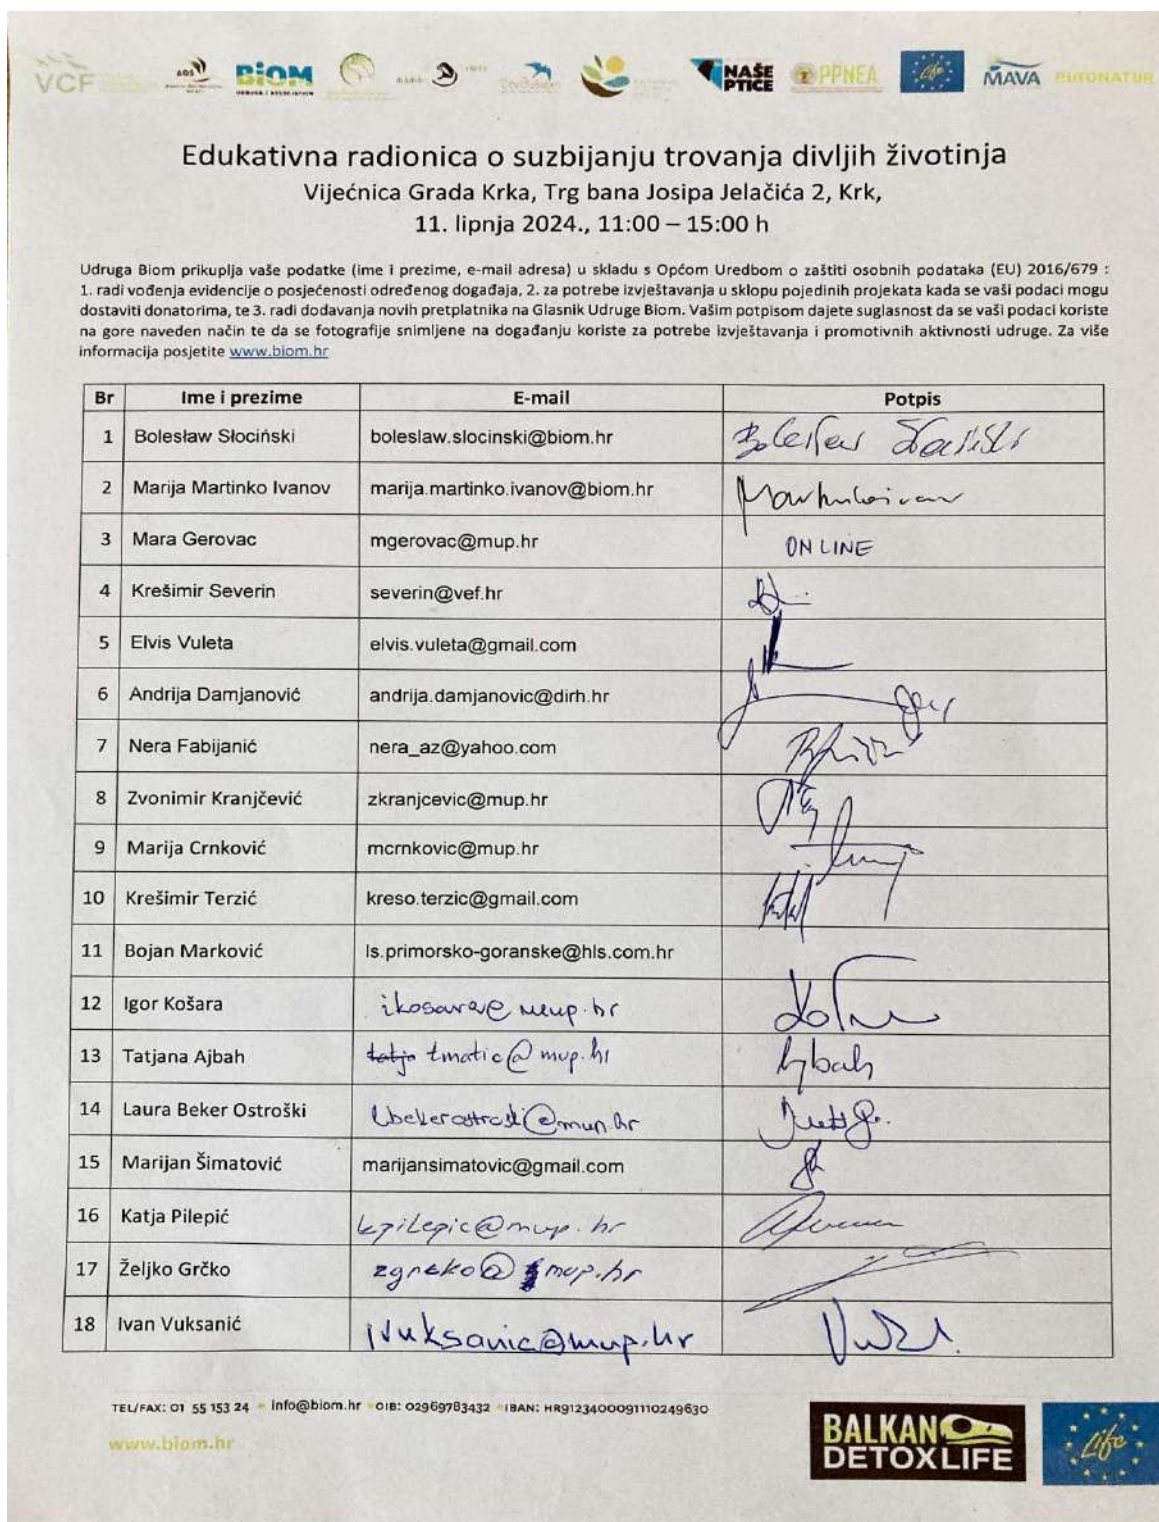 VCF
AOS
BIOM
NAŠE PTICE
PPNEA
Life
MAVA
EURONATUR
Edukativna radionica o suzbijanju trovanja divljih životinja
Vijećnica Grada Krka, Trg bana Josipa Jelačića 2, Krk,
11. lipnja 2024., 11:00 – 15:00 h
Udruga Biom prikuplja vaše podatke (ime i prezime, e-mail adresa) u skladu s Općom Uredbom o zaštiti osobnih podataka (EU) 2016/679 :
1. radi vođenja evidencije o posjećenosti određenog događaja, 2. za potrebe izvještavanja u sklopu pojedinih projekata kada se vaši podaci mogu
dostaviti donatorima, te 3. radi dodavanja novih pretplatnika na Glasnik Udruge Biom. Vašim potpisom dajete suglasnost da se vaši podaci koriste
na gore naveden način te da se fotografije snimljene na događanju koriste za potrebe izvještavanja i promotivnih aktivnosti udruge. Za više
informacija posjetite www.biom.hr
Br Ime i prezime E-mail Potpis
1 Bolesław Słociński boleslaw.slocinski@biom.hr
2 Marija Martinko Ivanov marija.martinko.ivanov@biom.hr
3 Mara Gerovac mgerovac@mup.hr ONLINE
4 Krešimir Severin severin@vef.hr
5 Elvis Vuleta elvis.vuleta@gmail.com
6 Andrija Damjanović andrija.damjanovic@dirh.hr
7 Nera Fabijanić nera_az@yahoo.com
8 Zvonimir Kranjčević zkranjcevic@mup.hr
9 Marija Crnković mcrnkovic@mup.hr
10 Krešimir Terzić kreso.terzic@gmail.com
11 Bojan Marković ls.primorsko-goranske@hls.com.hr
12 Igor Košara ikosara@mup.hr
13 Tatjana Ajbah tmatic@mup.hr Ajbah
14 Laura Beker Ostroški lbekerostroski@mup.hr
15 Marijan Šimatović marijansimatovic@gmail.com
16 Katja Pilepić kpilepic@mup.hr
17 Željko Grčko zgrcko@mup.hr
18 Ivan Vuksanić ivuksanic@mup.hr
TEL/FAX: 01 55 153 24 info@biom.hr OIB: 02969783432 IBAN: HR9123400091110249630
www.biom.hr
BALKAN
DETOXLIFE
Life